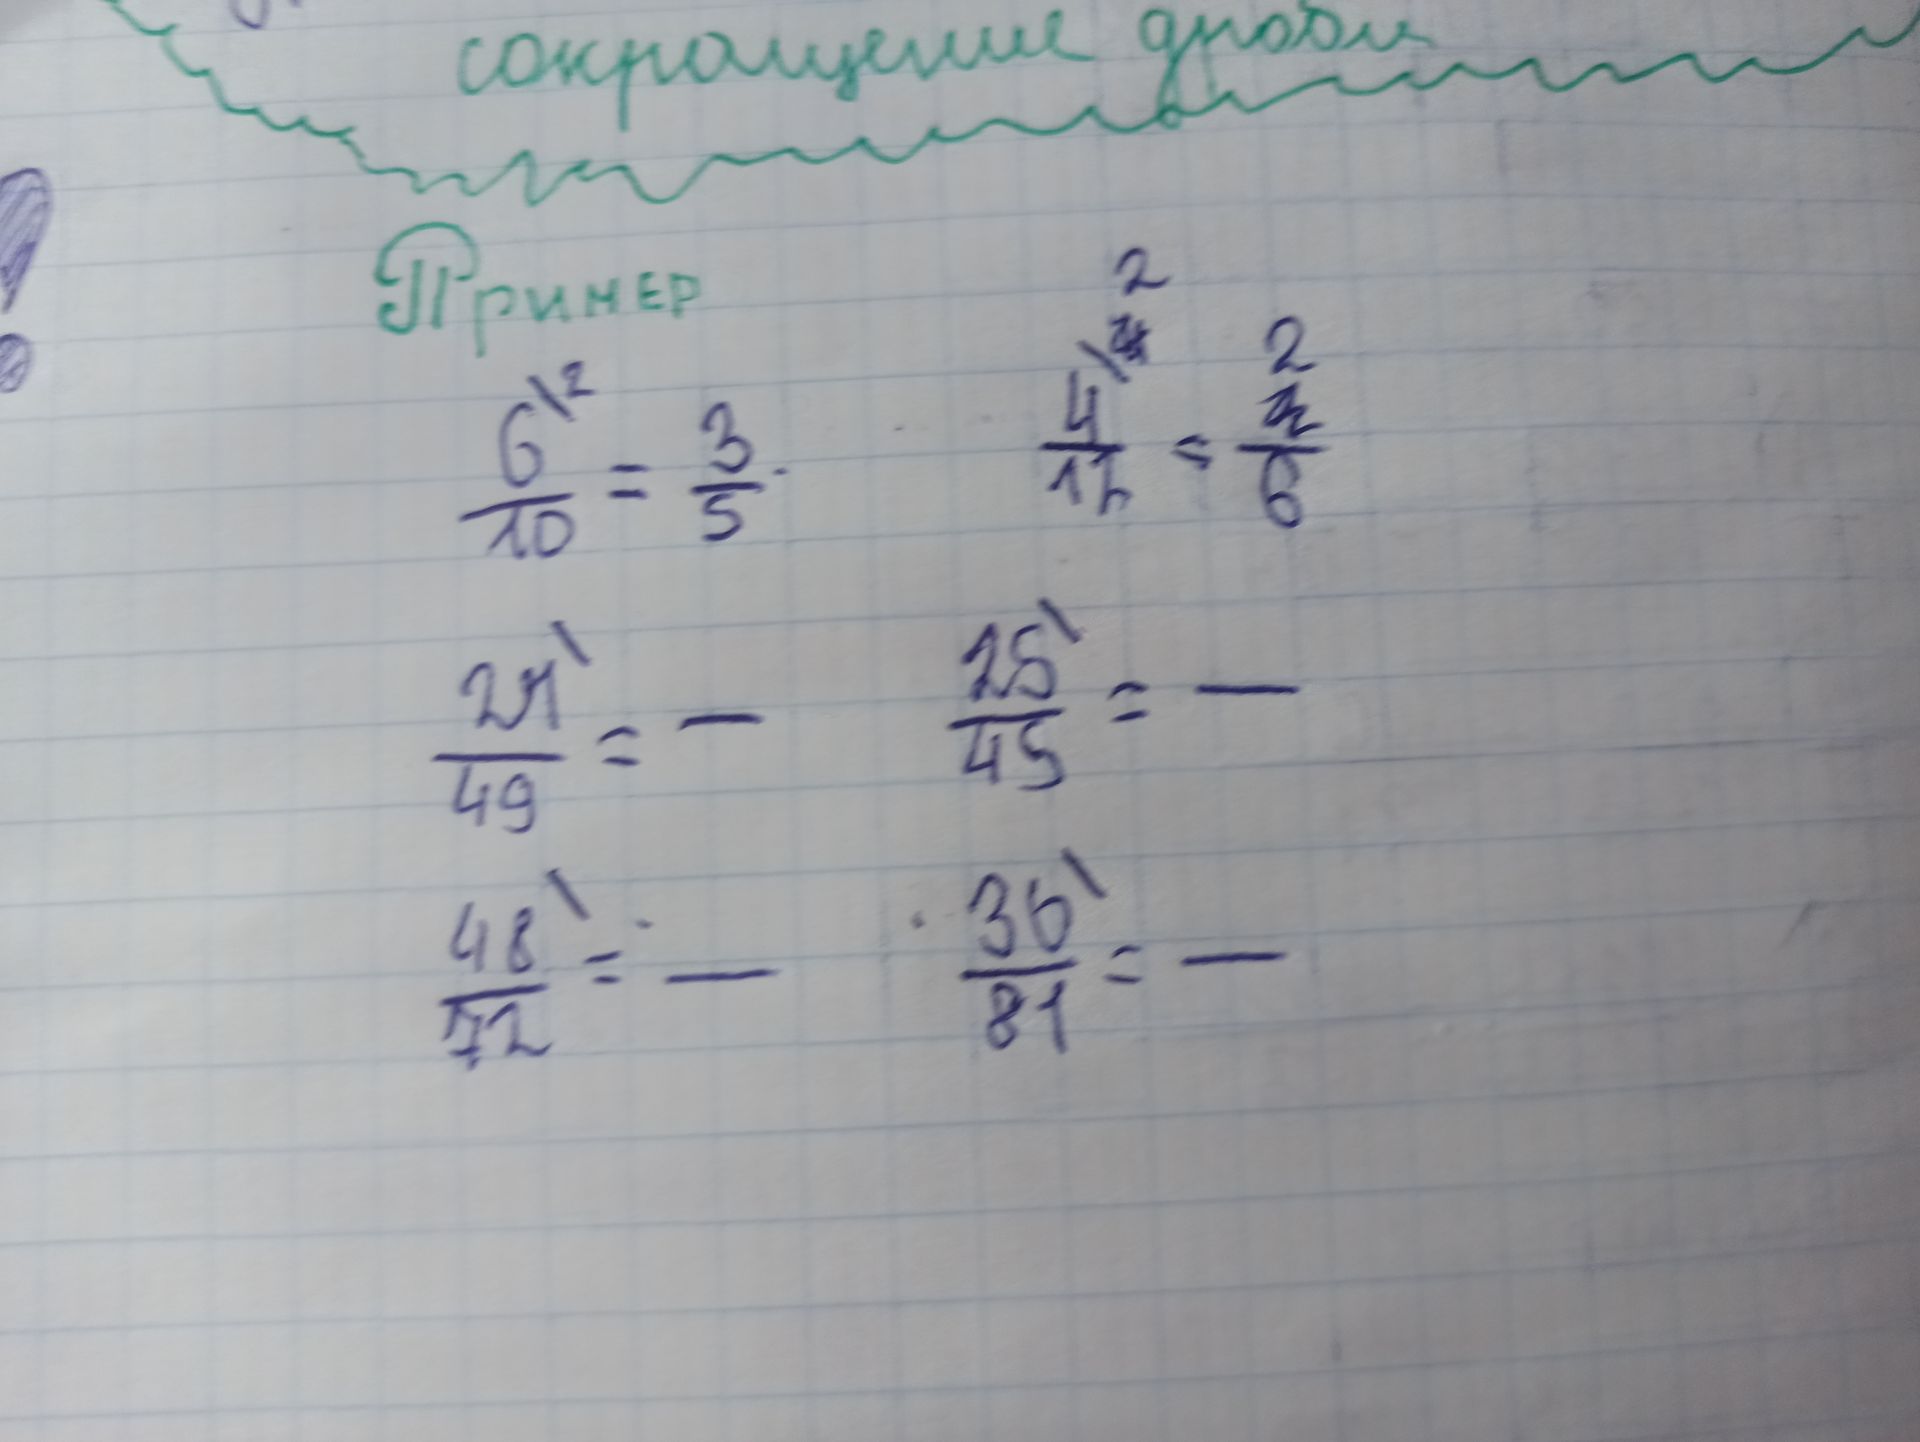 сокращение дроби
Пример
6\2/10 = 3/5. 4\2/12 = 2/6
21\/49 = — 25\/45 = —
48\/72 = — 36\/81 = —